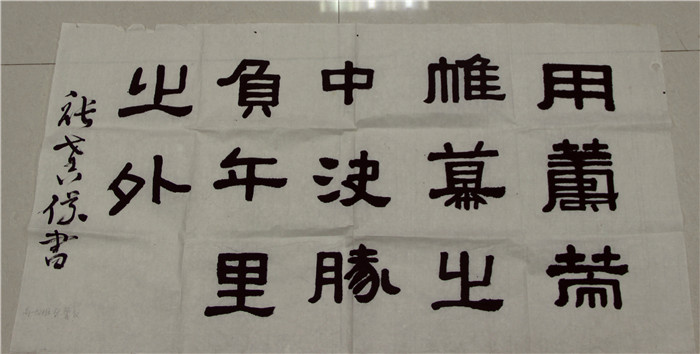 用籌策
帷幕之
中決勝
負千里
之外
書